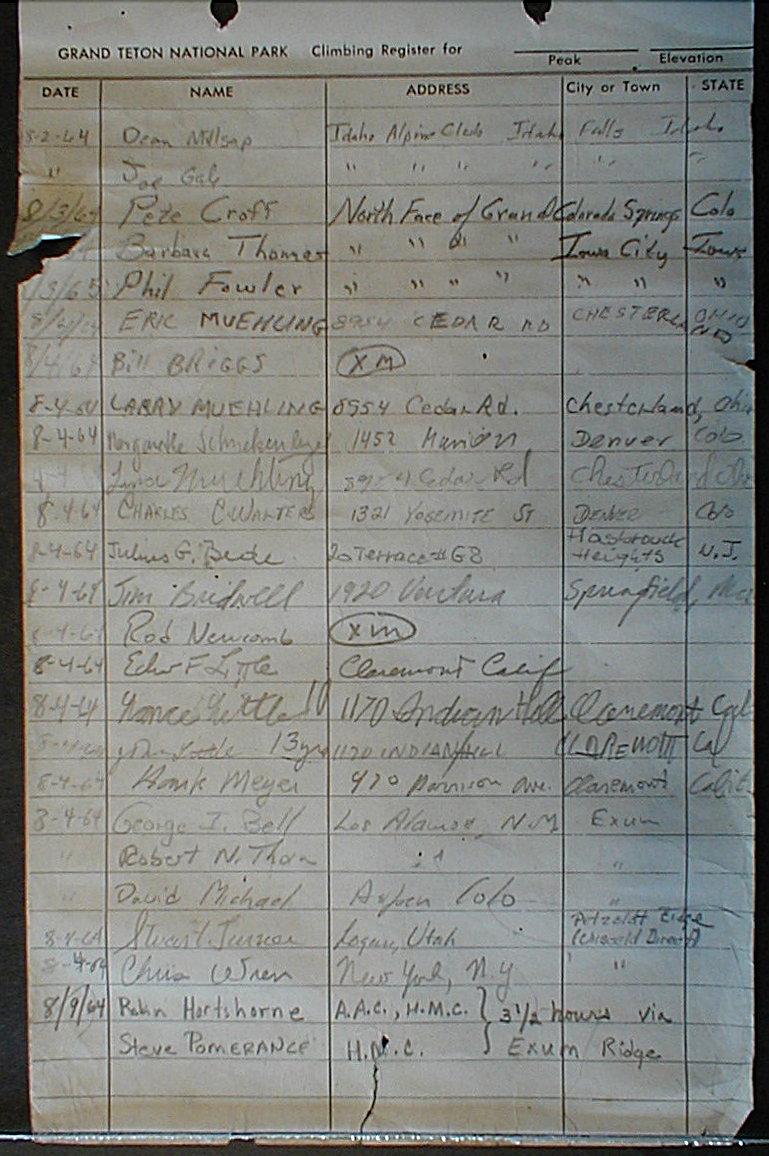 GRAND TETON NATIONAL PARK Climbing Register for
Peak Elevation
DATE NAME ADDRESS City or Town STATE
8-2-64 Dean Millsap Idaho Alpine Club Idaho Falls Idaho
" Joe Gale " " " " " "
8/3/64 Pete Croft North Face of Grand Colorado Springs Colo
Barbara Thomas " " " " Iowa City Iowa
Phil Fowler " " " " " " "
ERIC MUEHLING 8954 CEDAR RD CHESTERLAND OHIO
8/4/64 Bill BRIGGS XM
8-4-64 LARRY MUEHLING 8954 Cedar Rd. Chesterland, Ohio
8-4-64 1452 Marion Denver Colo.
Muehling Cedar Rd Chesterland
8-4-64 CHARLES C. WALTERS 1321 YOSEMITE ST DENVER Colo
8-4-64 Julius G. Bede 20 Terrace #G8 Hasbrouck Heights N.J.
8-4-64 Jim Bridwell 1920 Ventura Springfield,
8-4-64 Rod Newcomb XM
8-4-64 Edw F Little Claremont Calif
8-4-64 Little 10 1170 Indian Hill Claremont Cal
John Little 13 yrs 1170 INDIAN HILL CLAREMONT Cal
8-4-64 Hank Meyer 470 Harrison Ave. Claremont Calif.
8-4-64 George I. Bell Los Alamos, N.M. Exum
" Robert N. Thorn " "
" David Michael Aspen Colo "
8-4-64 Stuart Logan, Utah Petzoldt Ridge
8-4-64 Chris Wren New York, N.Y "
8/9/64 Robin Hartshorne A.A.C., H.M.C. 3 1/2 hours via
Steve POMERANCE H.M.C. Exum Ridge